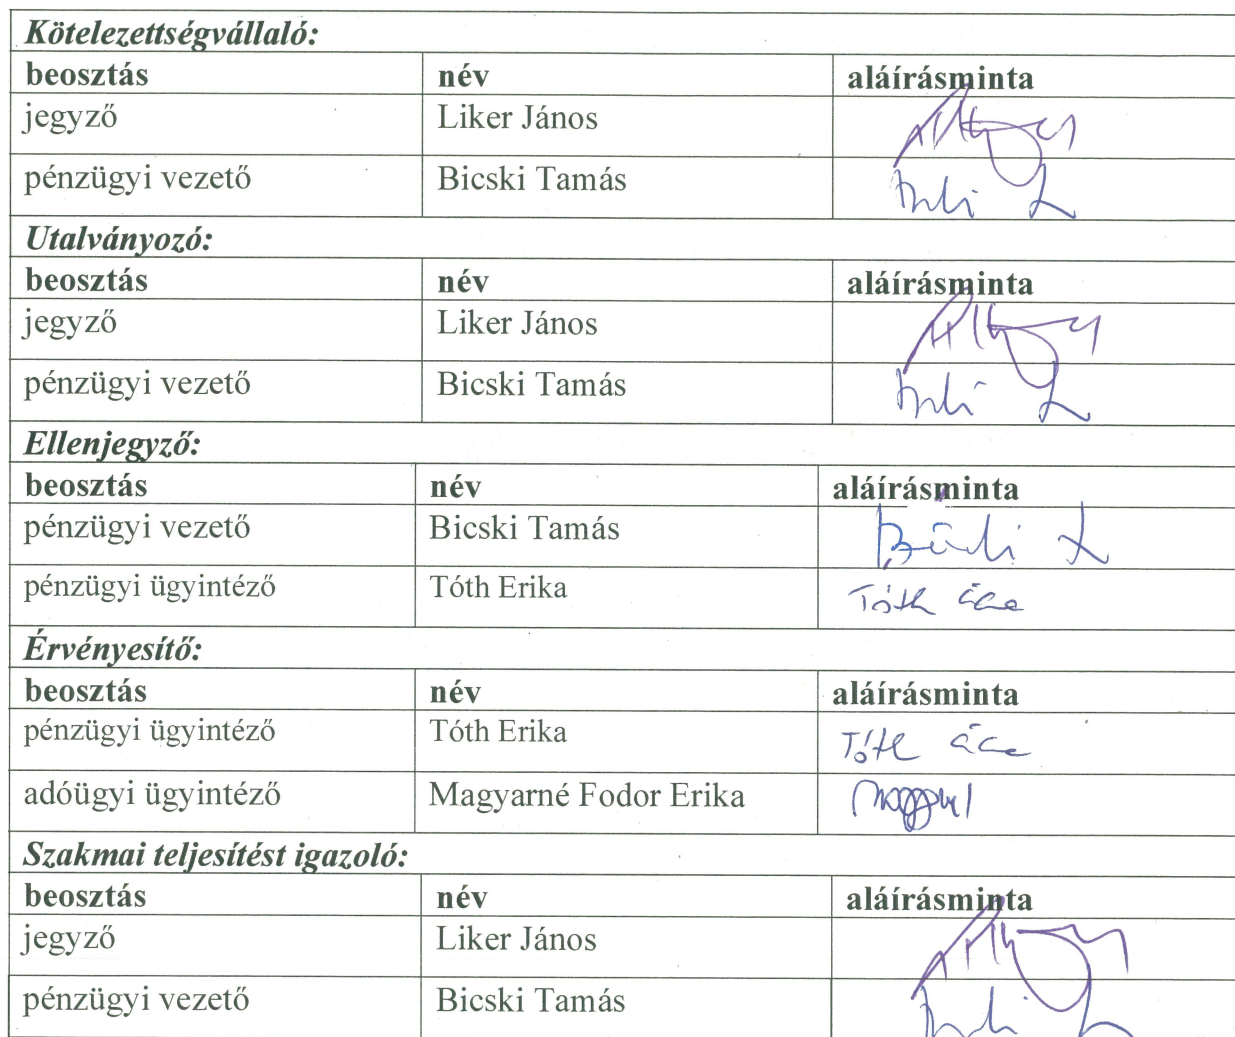 Kötelezettségvállaló:
beosztás név aláírásminta
jegyző Liker János
pénzügyi vezető Bicski Tamás
Utalványozó:
beosztás név aláírásminta
jegyző Liker János
pénzügyi vezető Bicski Tamás
Ellenjegyző:
beosztás név aláírásminta
pénzügyi vezető Bicski Tamás
pénzügyi ügyintéző Tóth Erika Tóth
Érvényesítő:
beosztás név aláírásminta
pénzügyi ügyintéző Tóth Erika Tóth
adóügyi ügyintéző Magyarné Fodor Erika
Szakmai teljesítést igazoló:
beosztás név aláírásminta
jegyző Liker János
pénzügyi vezető Bicski Tamás